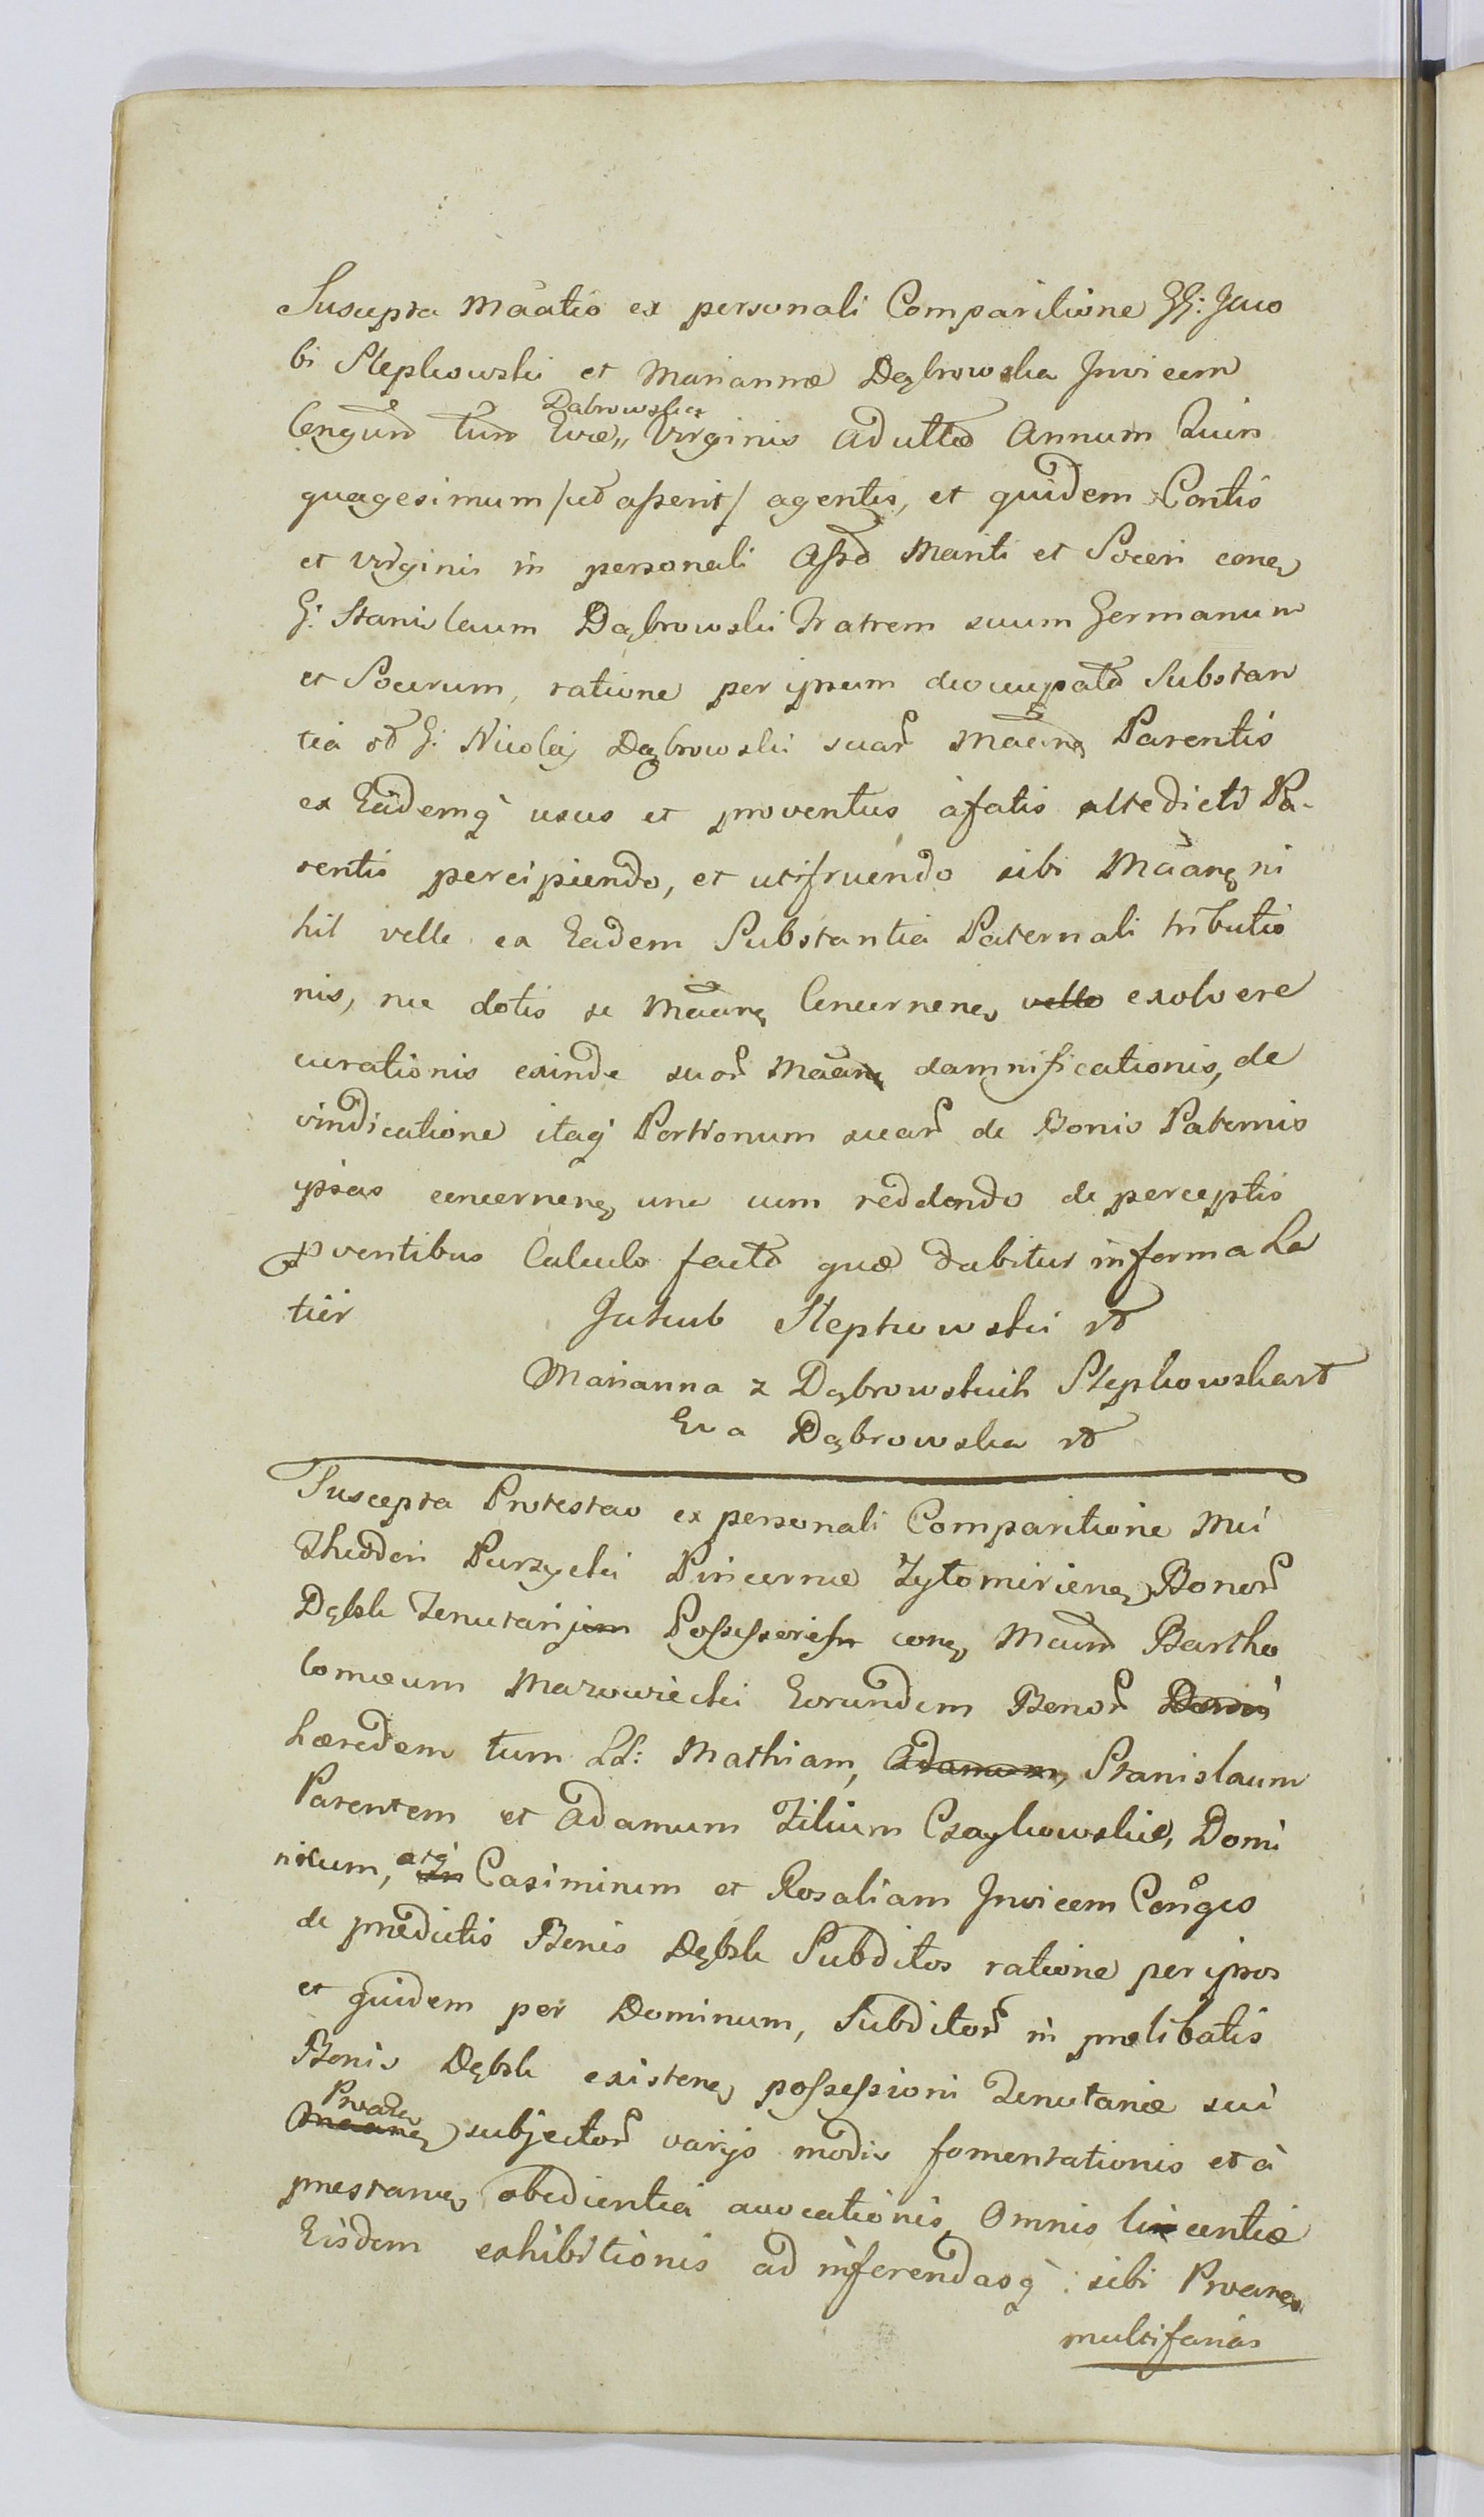 Suscepta Maãtio ex personali Comparitione GG: Jaco
bi Stępkowski et Mariannæ Dąbrowska Invicem
Congum tum Evæ,, Dąbrowska Virginis adultæ Annum Quin
quagesimum /ut asserit/ agentis, et quidem Contis
et Virginis in personali Assa Mariti et Soceri conęs
G: Stanislaum Dąbrowski Fratrem suum Germanum
et Socerum, ratione per ipsum deoccupatæ Substan
tiæ ol G: Nicolaj Dąbrowski suar Maãnę Parentis
ex Eademq usus et proventus à fatis altedicti Pa-
rentis percipiendo, et utifruendo sibi Maãnę ni
hil velle ex Eadem Substantia Paternali tributio
nis, nec dotis se Maãnę Concernenę velle exolvere
curationis exinde suar Maãnę damnificationis, de
vindicatione itaq Portionum suar de Bonis Paternis
ipsas concernenę una cum reddendo de perceptis
pventibus Calculo facta quæ dabitur in forma La
tiër
Jakub Stępkowski
Marianna z Dąbrowskich Stępkowska
Eva Dąbrowska
Suscepta Protestao ex personali Comparitione Mci
Theodori Purzycki Pincernæ Zytomirienę Bonor
Dębsk Tenutarij Possessoris conę Mcum Bartho
lomæum Mazowiecki Eorundem Bonor
hæredem tum LL: Mathiam, Adamum, Stanislaum
Parentem et Adamum Filium Czaykowskie, Domi
nicum, atq Casimirum et Rosaliam Invicem Conges
de prædictis Bonis Dębsk Subditos ratione per ipsos
et quidem per Dominum, Subditor in prælibatis
Bonis Dębsk existenę possessioni Tenutariæ sui
Proãnę subjector varijs modis fomentationis et à
præstanę obedientia avocationis, Omnis licentiæ
Eisdem exhibitionis ad inferendasq sibi Proãnę
multifarias